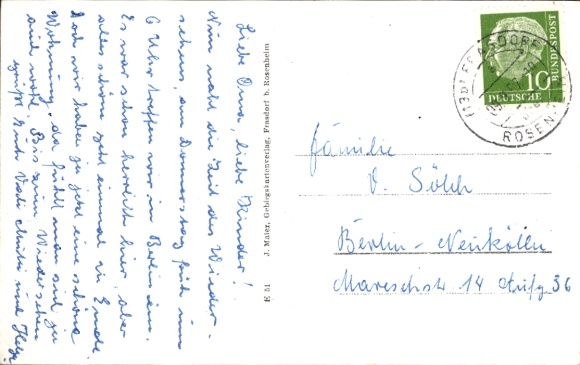 Liebe Oma, liebe Kinder!
Nun naht die Zeit des Wieder-
sehens, am Donnerstag früh um
6 Uhr treffen wir in Berlin ein.
Es war schon herrlich hier, aber
alles schöne geht einmal zu Ende.
Doch wir haben ja jetzt eine schöne
Wohnung, da fühlt man sich ja
auch wohl. Bis zum Wiedersehen
grüßt Euch Vati Mutti und Helga
E 51 J. Maier, Gebirgskartenverlag, Frasdorf b. Rosenheim
10
DEUTSCHE
BUNDESPOST
(13b) FRASDORF
ROSENHEIM
Familie
V. Sölch
Berlin-Neukölln
Mareschstr 14 Aufg 36